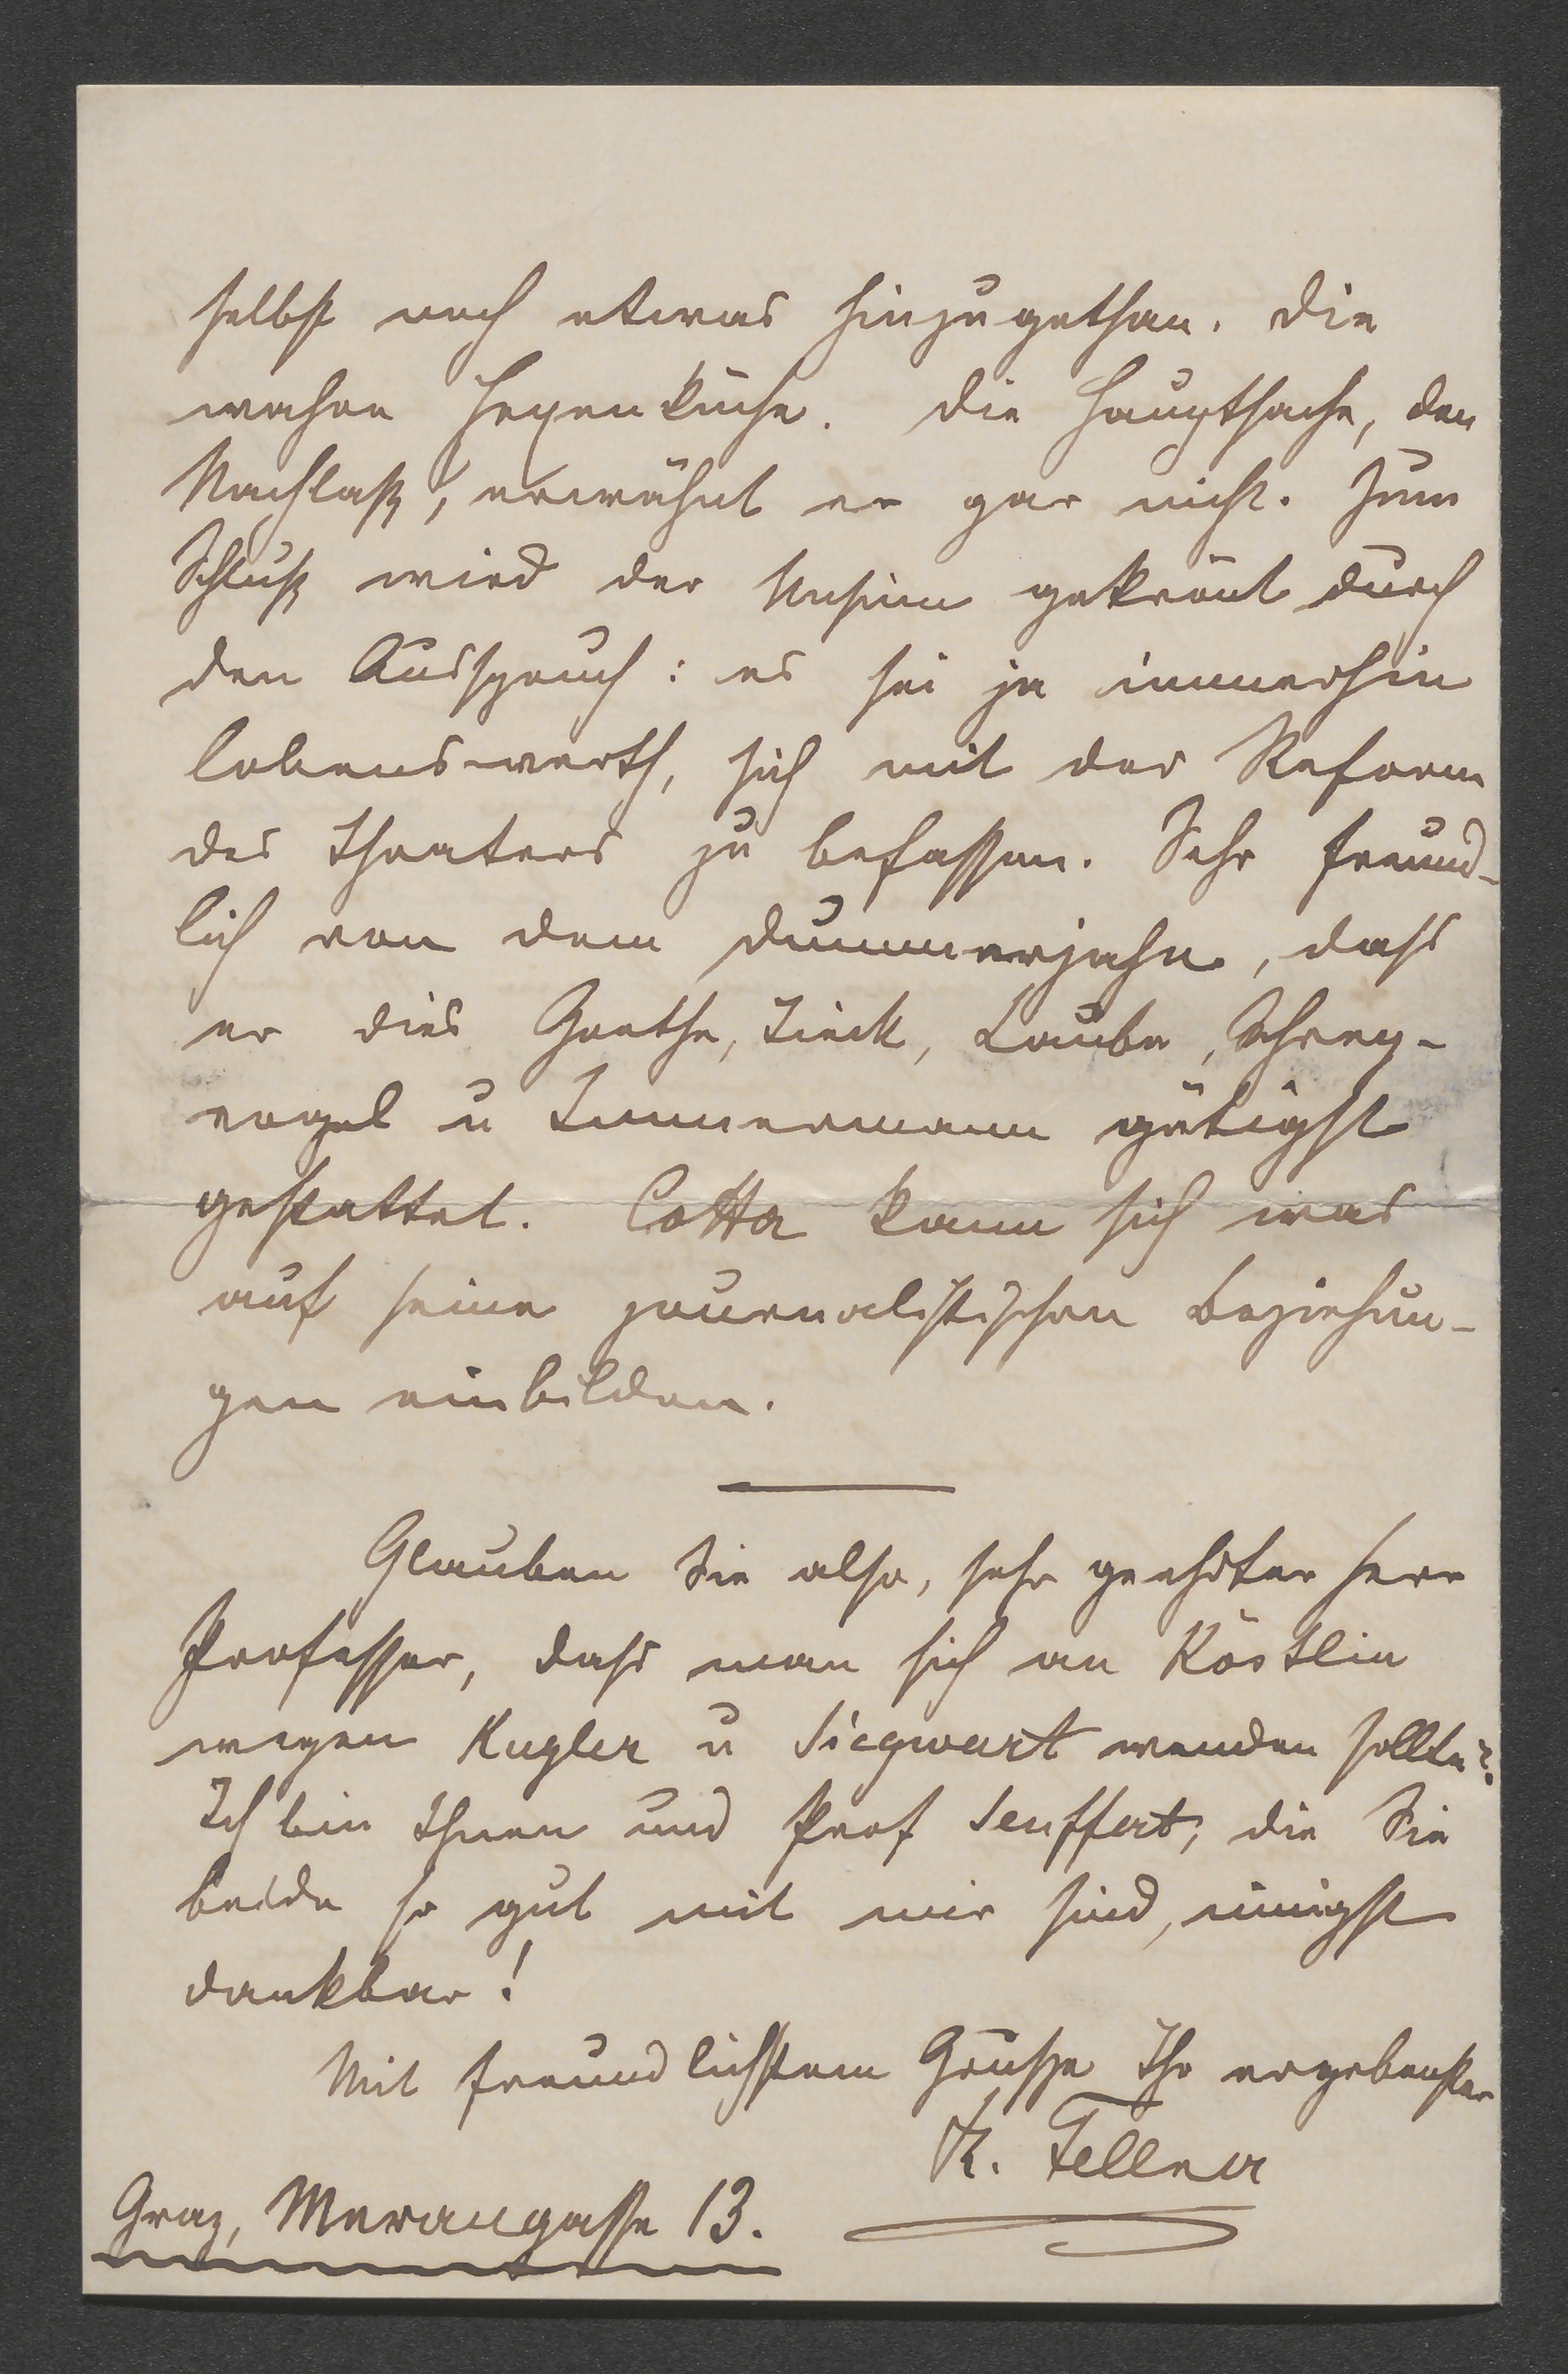 selbst noch etwas hinzugethan. Die
wahre Hexenküche. Die Hauptsache, den
Nachlaß, erwähnt er gar nicht. Zum
Schluß wird der Unsinn gekrönt durch
den Ausspruch: es sei ja immerhin
lobenswerth, sich mit der Reform
des Theaters zu befassen. Sehr freund-
lich von dem Dummerjahn, dass
er dies Goethe, Tieck, Laube, Schrey-
vogel u Immermann gütigst
gestattet. Cotta kann sich was
auf seine journalistischen Beziehun-
gen einbilden.
Glauben Sie also, sehr geehrter Herr
Professor, dass man sich an Köstlin
wegen Kugler u Siegwart wenden sollte?
Ich bin Ihnen und Prof Seuffert, die Sie
beide so gut mit mir sind, innigst
dankbar!
Mit freundlichstem Gruße Ihr ergebenster
R. Fellner
Graz, Merangasse 13.